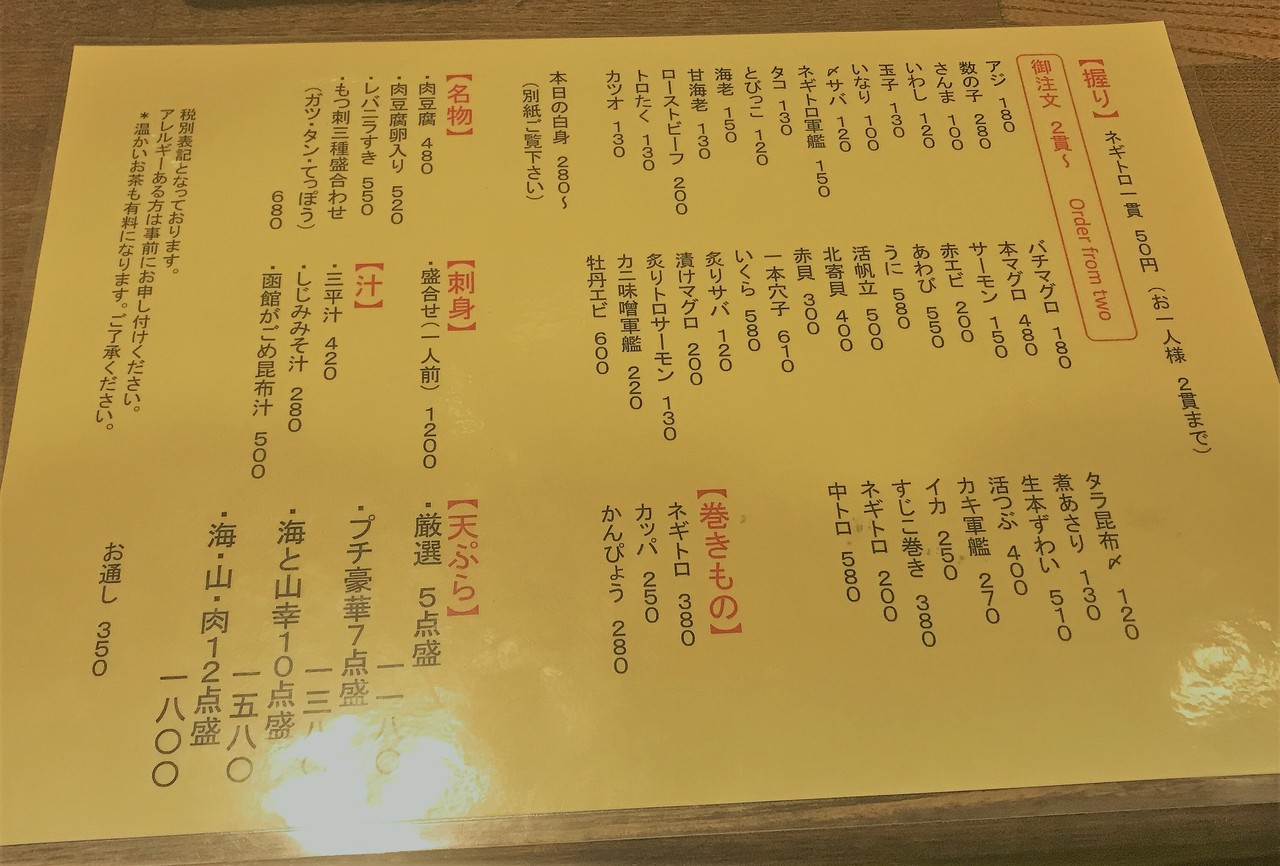 【握り】 ネギトロ一貫 50円(お一人様 2貫まで)
御注文 2貫～ Order from two
アジ 180
数の子 280
さんま 100
いわし 120
玉子 130
いなり 100
〆サバ 120
ネギトロ軍艦 150
タコ 130
とびっこ 120
海老 150
甘海老 130
ローストビーフ 200
トロたく 130
カツオ 130
本日の白身 280～
(別紙ご覧下さい)
バチマグロ 180
本マグロ 480
サーモン 150
赤エビ 200
あわび 550
うに 580
活帆立 500
北寄貝 400
赤貝 300
一本穴子 610
いくら 580
炙りサバ 120
漬けマグロ 200
炙りトロサーモン 130
カニ味噌軍艦 220
牡丹エビ 600
タラ昆布〆 120
煮あさり 130
生本ずわい 510
活つぶ 400
カキ軍艦 270
イカ 250
すじこ巻き 380
ネギトロ 200
中トロ 580
【巻きもの】
ネギトロ 380
カッパ 250
かんぴょう 280
【名物】
・肉豆腐 480
・肉豆腐卵入り 520
・レバニラすき 550
・もつ刺三種盛合わせ
(ガツ・タン・てっぽう)
680
【刺身】
・盛合せ(一人前) 1200
【汁】
・三平汁 420
・しじみみそ汁 280
・函館がごめ昆布汁 500
【天ぷら】
・厳選 5点盛
一一八〇
・プチ豪華7点盛
一三八
・海と山幸10点盛
一五八〇
・海・山・肉12点盛
一八〇〇
税別表記となっております。
アレルギーある方は事前にお申し付けください。
*温かいお茶も有料になります。ご了承ください。
お通し 350